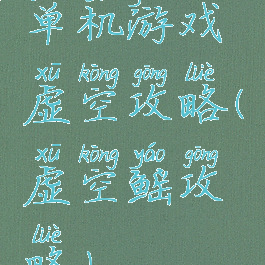 单机游戏
xū kōng gōng lüè
虚空攻略(
xū kōng yáo gōng
虚空鳐攻
lüè
略)